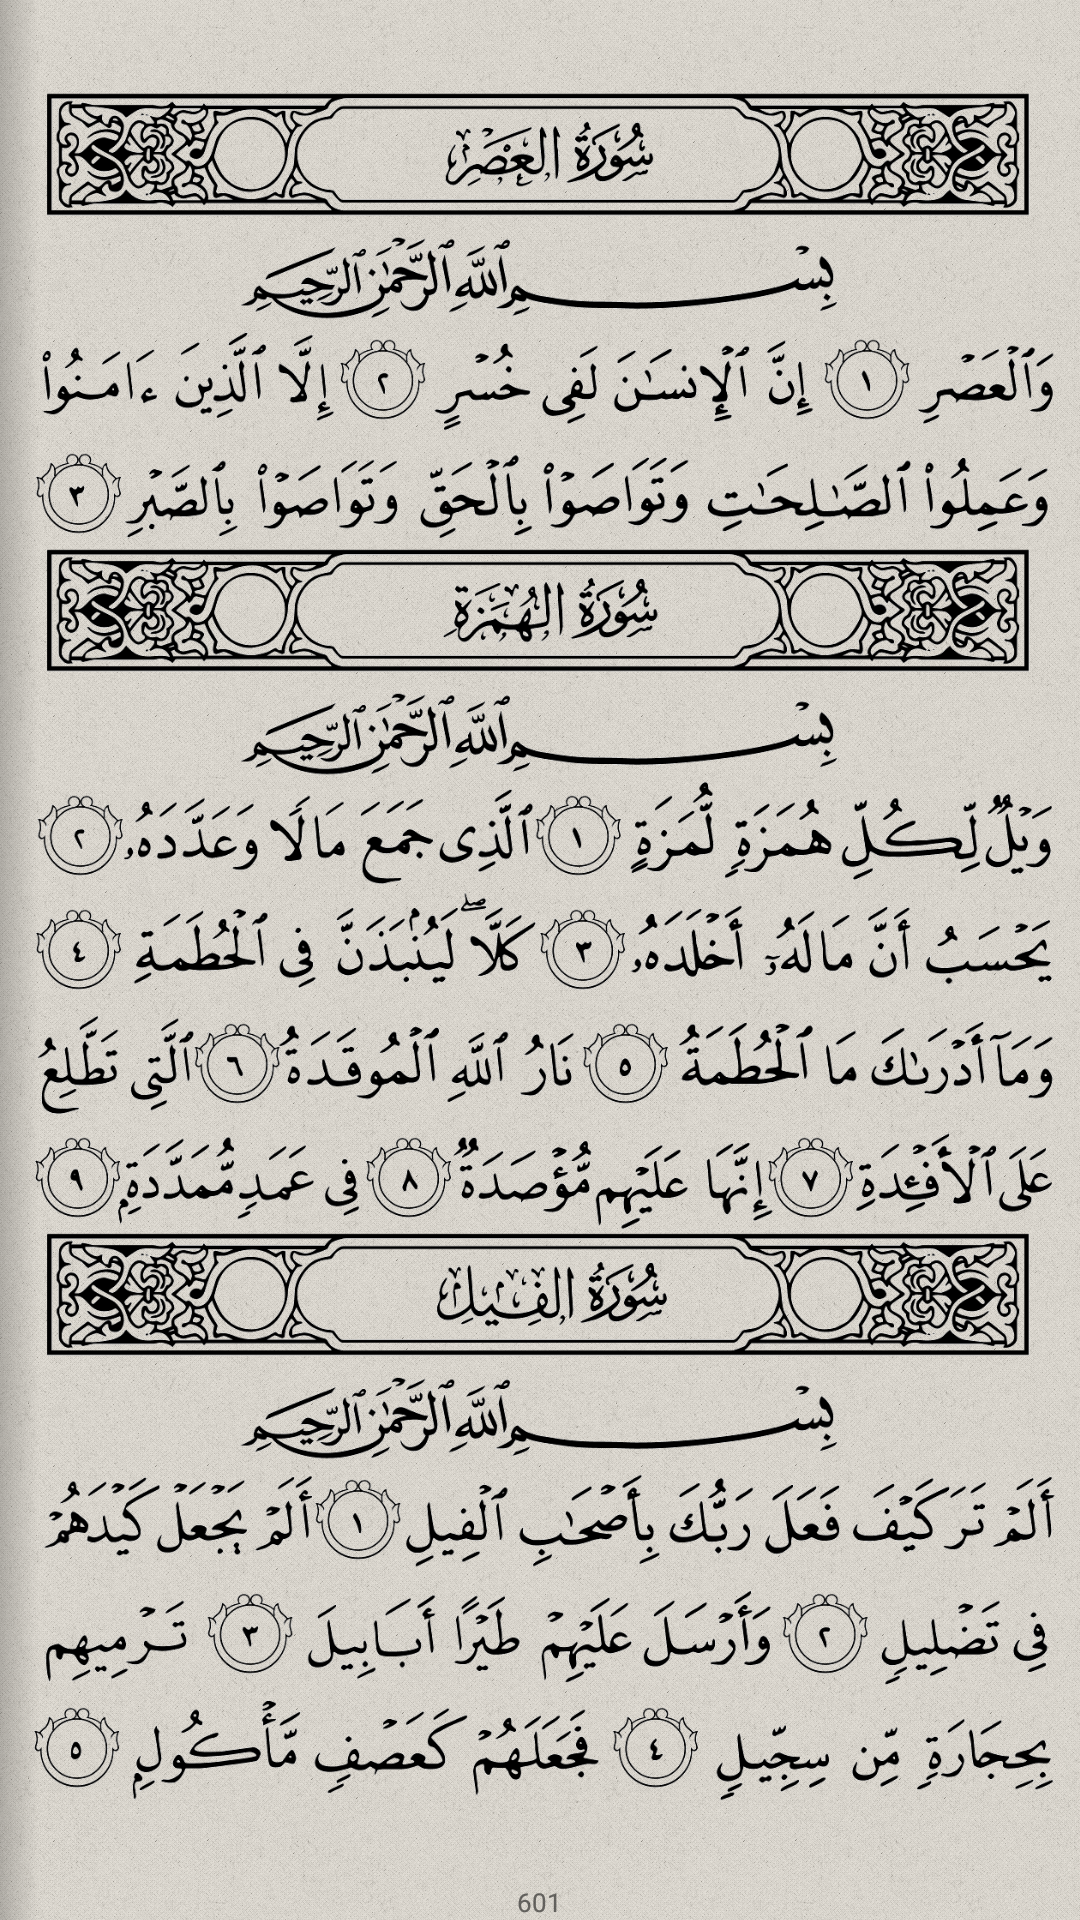 سُورَةُ العَصْرِ
بِسْمِ ٱللَّهِ ٱلرَّحْمَٰنِ ٱلرَّحِيمِ
وَٱلْعَصْرِ ١ إِنَّ ٱلْإِنسَٰنَ لَفِى خُسْرٍ ٢ إِلَّا ٱلَّذِينَ ءَامَنُوا۟
وَعَمِلُوا۟ ٱلصَّٰلِحَٰتِ وَتَوَاصَوْا۟ بِٱلْحَقِّ وَتَوَاصَوْا۟ بِٱلصَّبْرِ ٣
سُورَةُ الهُمَزَةِ
بِسْمِ ٱللَّهِ ٱلرَّحْمَٰنِ ٱلرَّحِيمِ
وَيْلٌ لِّكُلِّ هُمَزَةٍ لُّمَزَةٍ ١ ٱلَّذِى جَمَعَ مَالًا وَعَدَّدَهُۥ ٢
يَحْسَبُ أَنَّ مَالَهُۥٓ أَخْلَدَهُۥ ٣ كَلَّا ۖ لَيُنۢبَذَنَّ فِى ٱلْحُطَمَةِ ٤
وَمَآ أَدْرَىٰكَ مَا ٱلْحُطَمَةُ ٥ نَارُ ٱللَّهِ ٱلْمُوقَدَةُ ٦ ٱلَّتِى تَطَّلِعُ
عَلَى ٱلْأَفْـِٔدَةِ ٧ إِنَّهَا عَلَيْهِم مُّؤْصَدَةٌ ٨ فِى عَمَدٍ مُّمَدَّدَةٍۭ ٩
سُورَةُ الفِيلِ
بِسْمِ ٱللَّهِ ٱلرَّحْمَٰنِ ٱلرَّحِيمِ
أَلَمْ تَرَ كَيْفَ فَعَلَ رَبُّكَ بِأَصْحَٰبِ ٱلْفِيلِ ١ أَلَمْ يَجْعَلْ كَيْدَهُمْ
فِى تَضْلِيلٍ ٢ وَأَرْسَلَ عَلَيْهِمْ طَيْرًا أَبَابِيلَ ٣ تَرْمِيهِم
بِحِجَارَةٍ مِّن سِجِّيلٍ ٤ فَجَعَلَهُمْ كَعَصْفٍ مَّأْكُولٍۭ ٥
601